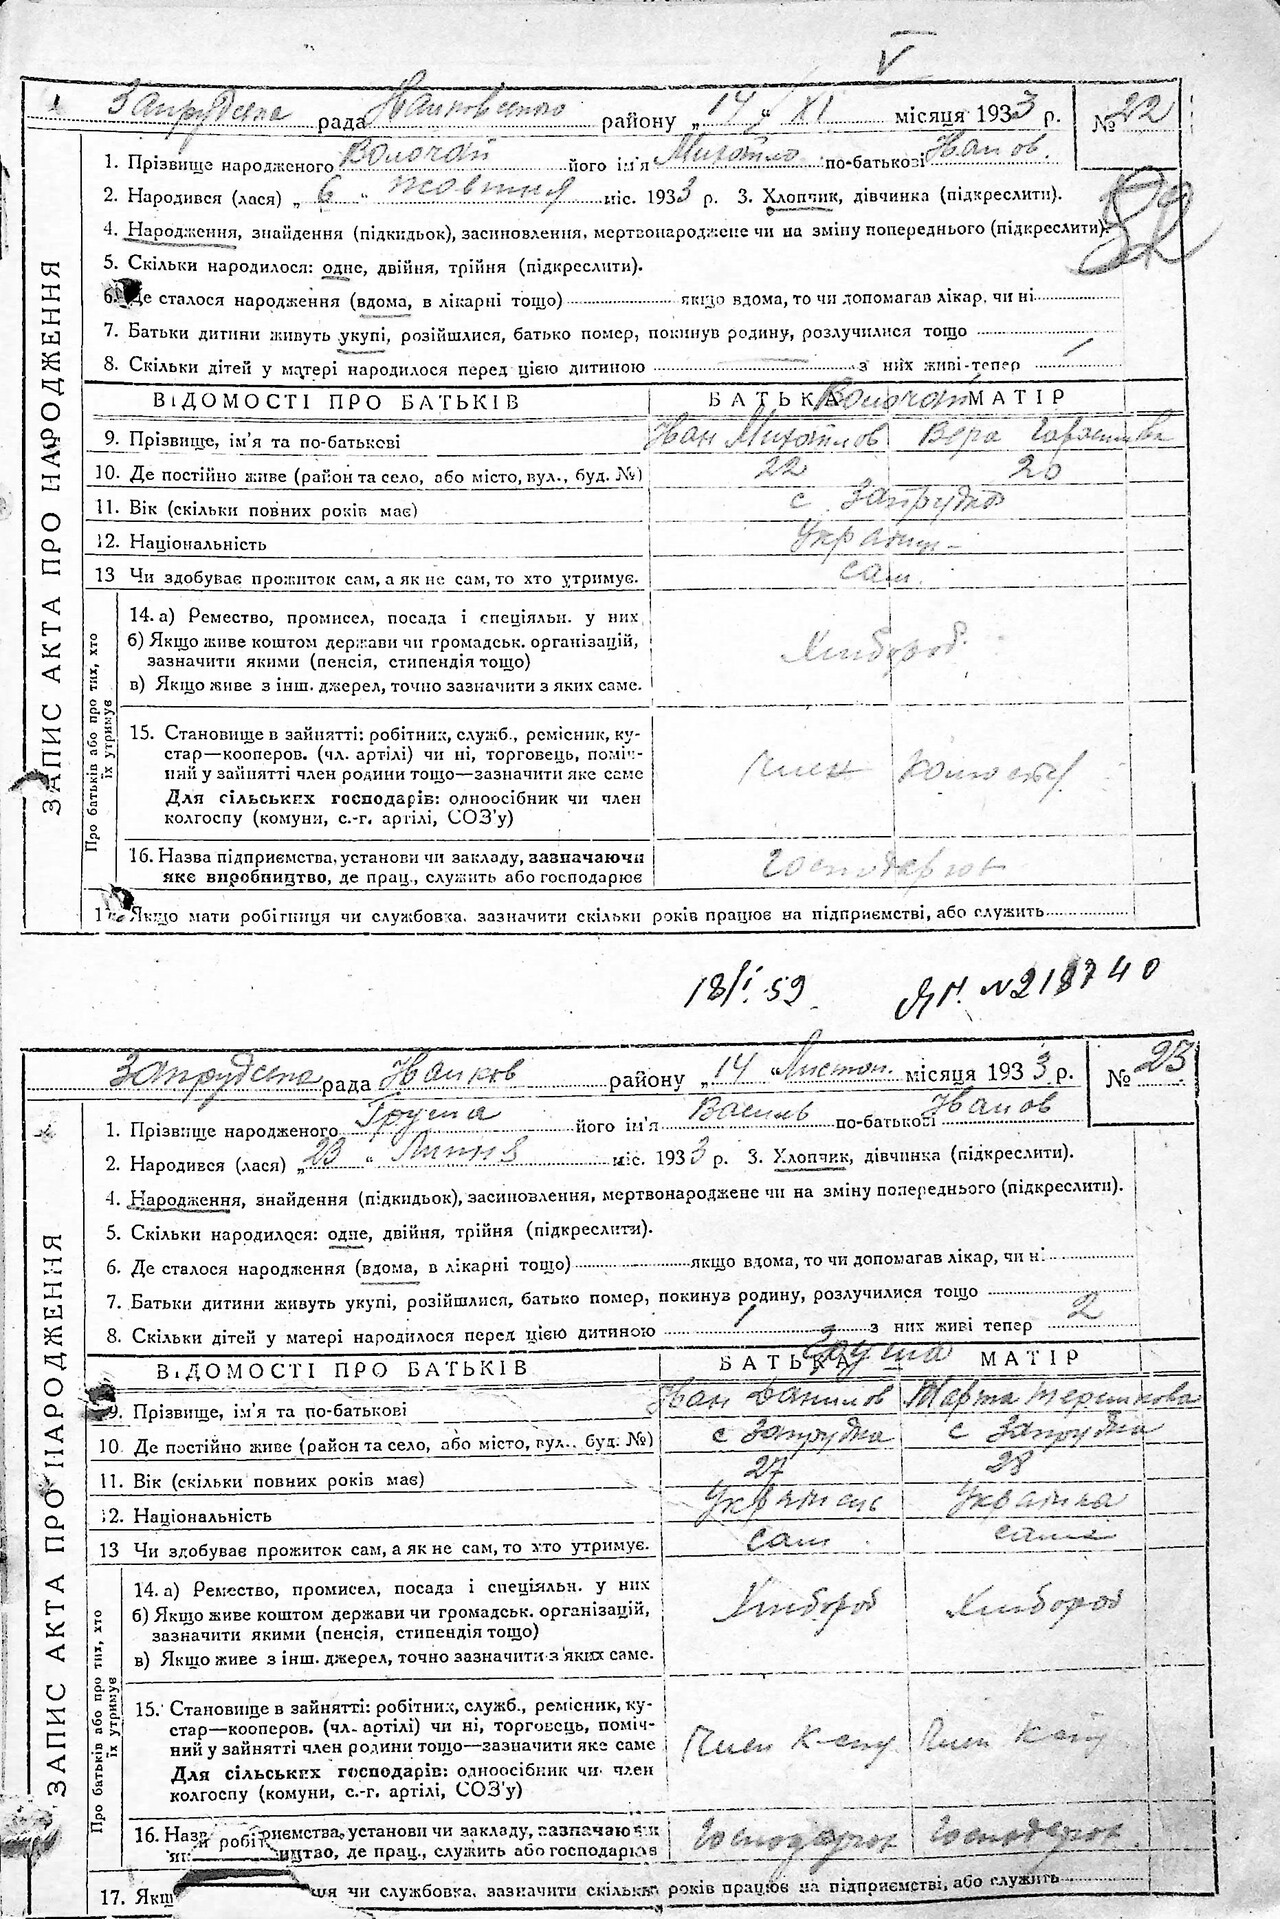 V
Запрудська рада Іванковського району „14" XI місяця 1933 р. № 22
1. Прізвище народженого Волочай його ім'я Михайло по-батькові Іванов.
2. Народився (лася) „6" жовтня міс. 1933 р. 3. Хлопчик, дівчинка (підкреслити).
4. Народження, знайдення (підкидьок), засиновлення, мертвонароджене чи на зміну попереднього (підкреслити).
5. Скільки народилося: одне, двійня, трійня (підкреслити).
6. Де сталося народження (вдома, в лікарні тощо) якщо вдома, то чи допомагав лікар, чи ні
7. Батьки дитини живуть укупі, розійшлися, батько помер, покинув родину, розлучилися тощо
8. Скільки дітей у матері народилося перед цією дитиною — з них живі-тепер
ЗАПИС АКТА ПРО НАРОДЖЕННЯ
ВІДОМОСТІ ПРО БАТЬКІВ БАТЬКА Волочай МАТІР
9. Прізвище, ім'я та по-батькові Іван Михайлов Вера
10. Де постійно живе (район та село, або місто, вул., буд. №) 22 20
11. Вік (скільки повних років має) с. Запрудка
12. Національність Україн-
13 Чи здобуває прожиток сам, а як не сам, то хто утримує. сам.
Про батьків або про тих, хто їх утримує
14. а) Ремество, промисел, посада і спеціяльн. у них
б) Якщо живе коштом держави чи громадськ. організацій,
зазначити якими (пенсія, стипендія тощо) Хлібороб.
в) Якщо живе з інш. джерел, точно зазначити з яких саме.
15. Становище в зайнятті: робітник, служб., ремісник, ку-
стар—кооперов. (чл. артілі) чи ні, торговець, поміч-
ний у зайнятті член родини тощо—зазначити яке саме член
Для сільських господарів: одноосібник чи член
колгоспу (комуни, с.-г. артілі, СОЗ'у)
16. Назва підприємства, установи чи закладу, зазначаючи
яке виробництво, де прац., служить або господарює
17. Якщо мати робітниця чи службовка, зазначити скільки років працює на підприємстві, або служить
18/I.59 № 218740
Запрудська рада Іванков району „14" Листоп. місяця 1933 р. № 23
1. Прізвище народженого Груша його ім'я Василь по-батькові Іванов
2. Народився (лася) „23" Липня міс. 1933 р. 3. Хлопчик, дівчинка (підкреслити).
4. Народження, знайдення (підкидьок), засиновлення, мертвонароджене чи на зміну попереднього (підкреслити).
5. Скільки народилося: одне, двійня, трійня (підкреслити).
6. Де сталося народження (вдома, в лікарні тощо) якщо вдома, то чи допомагав лікар, чи ні
7. Батьки дитини живуть укупі, розійшлися, батько помер, покинув родину, розлучилися тощо
8. Скільки дітей у матері народилося перед цією дитиною 1 з них живі тепер 2
ЗАПИС АКТА ПРО НАРОДЖЕННЯ
ВІДОМОСТІ ПРО БАТЬКІВ БАТЬКА Груша МАТІР
9. Прізвище, ім'я та по-батькові Іван Данилов Марта
10. Де постійно живе (район та село, або місто, вул., буд. №) с Запрудка с Запрудка
11. Вік (скільки повних років має) 27 28
12. Національність Українець Українка
13 Чи здобуває прожиток сам, а як не сам, то хто утримує. сам сама
Про батьків або про тих, хто їх утримує
14. а) Ремество, промисел, посада і спеціяльн. у них
б) Якщо живе коштом держави чи громадськ. організацій, Хлібороб Хлібороб
зазначити якими (пенсія, стипендія тощо)
в) Якщо живе з інш. джерел, точно зазначити з яких саме.
15. Становище в зайнятті: робітник, служб., ремісник, ку-
стар—кооперов. (чл. артілі) чи ні, торговець, поміч-
ний у зайнятті член родини тощо—зазначити яке саме Член к-спу Член к-спу
Для сільських господарів: одноосібник чи член
колгоспу (комуни, с.-г. артілі, СОЗ'у)
16. Назв риємства, установи чи закладу, зазначаючи
ництво, де прац., служить або господарює
17. Якщ ця чи службовка, зазначити скільки років працює на підприємстві, або служить